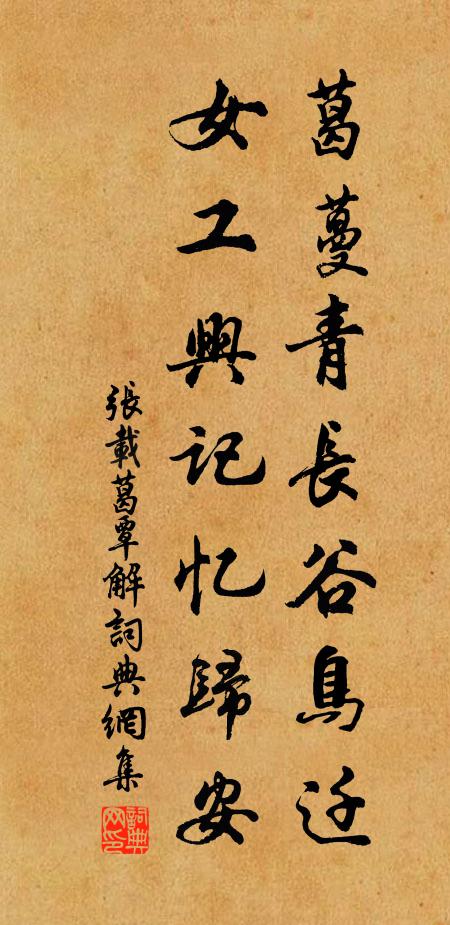 葛蔓青長谷鳥迁
女工興記忆歸安
張載葛覃解詞典網集
詞典网印